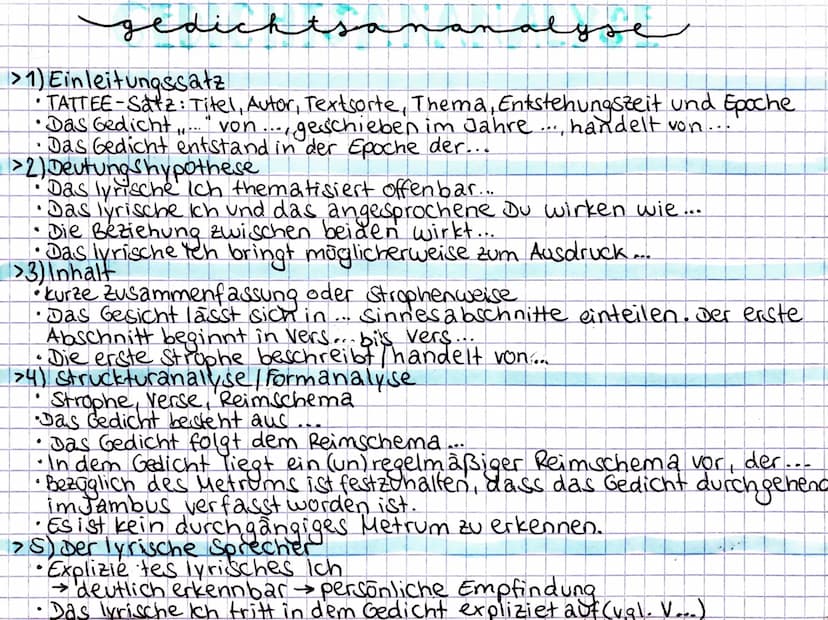 gedichtsananalyse
>1) Einleitungssatz
• TATTEE-Satz: Titel, Autor, Textsorte, Thema, Entstehungszeit und Epoche
• Das Gedicht „..." von ..., geschieben im Jahre ..., handelt von...
• Das Gedicht entstand in der Epoche der...
>2) Deutungshypothese
• Das lyrische Ich thematisiert offenbar...
• Das lyrische Ich und das angesprochene Du wirken wie...
• Die Beziehung zwischen beiden wirkt...
• Das lyrische Ich bringt möglicherweise zum Ausdruck...
>3) Inhalt
• kurze Zusammenfassung oder Strophenweise
• Das Gesicht lässt sich in ... Sinnesabschnitte einteilen. Der erste
Abschnitt beginnt in Vers... bis Vers...
• Die erste Strophe beschreibt/handelt von...
>4) Struckturanalyse/Formanalyse
• Strophe, Verse, Reimschema
• Das Gedicht besteht aus ...
• Das Gedicht folgt dem Reimschema...
• In dem Gedicht liegt ein (un)regelmäßiger Reimschema vor, der...
• Bezüglich des Metrums ist festzuhalten, dass das Gedicht durchgehend
im Jambus verfasst worden ist.
• Es ist kein durchgängiges Metrum zu erkennen.
>5) Der lyrische Sprecher
• Explizie tes lyrisches Ich
→ deutlich erkennbar → persönliche Empfindung
• Das lyrische Ich tritt in dem Gedicht expliziet auf (vgl. V...)